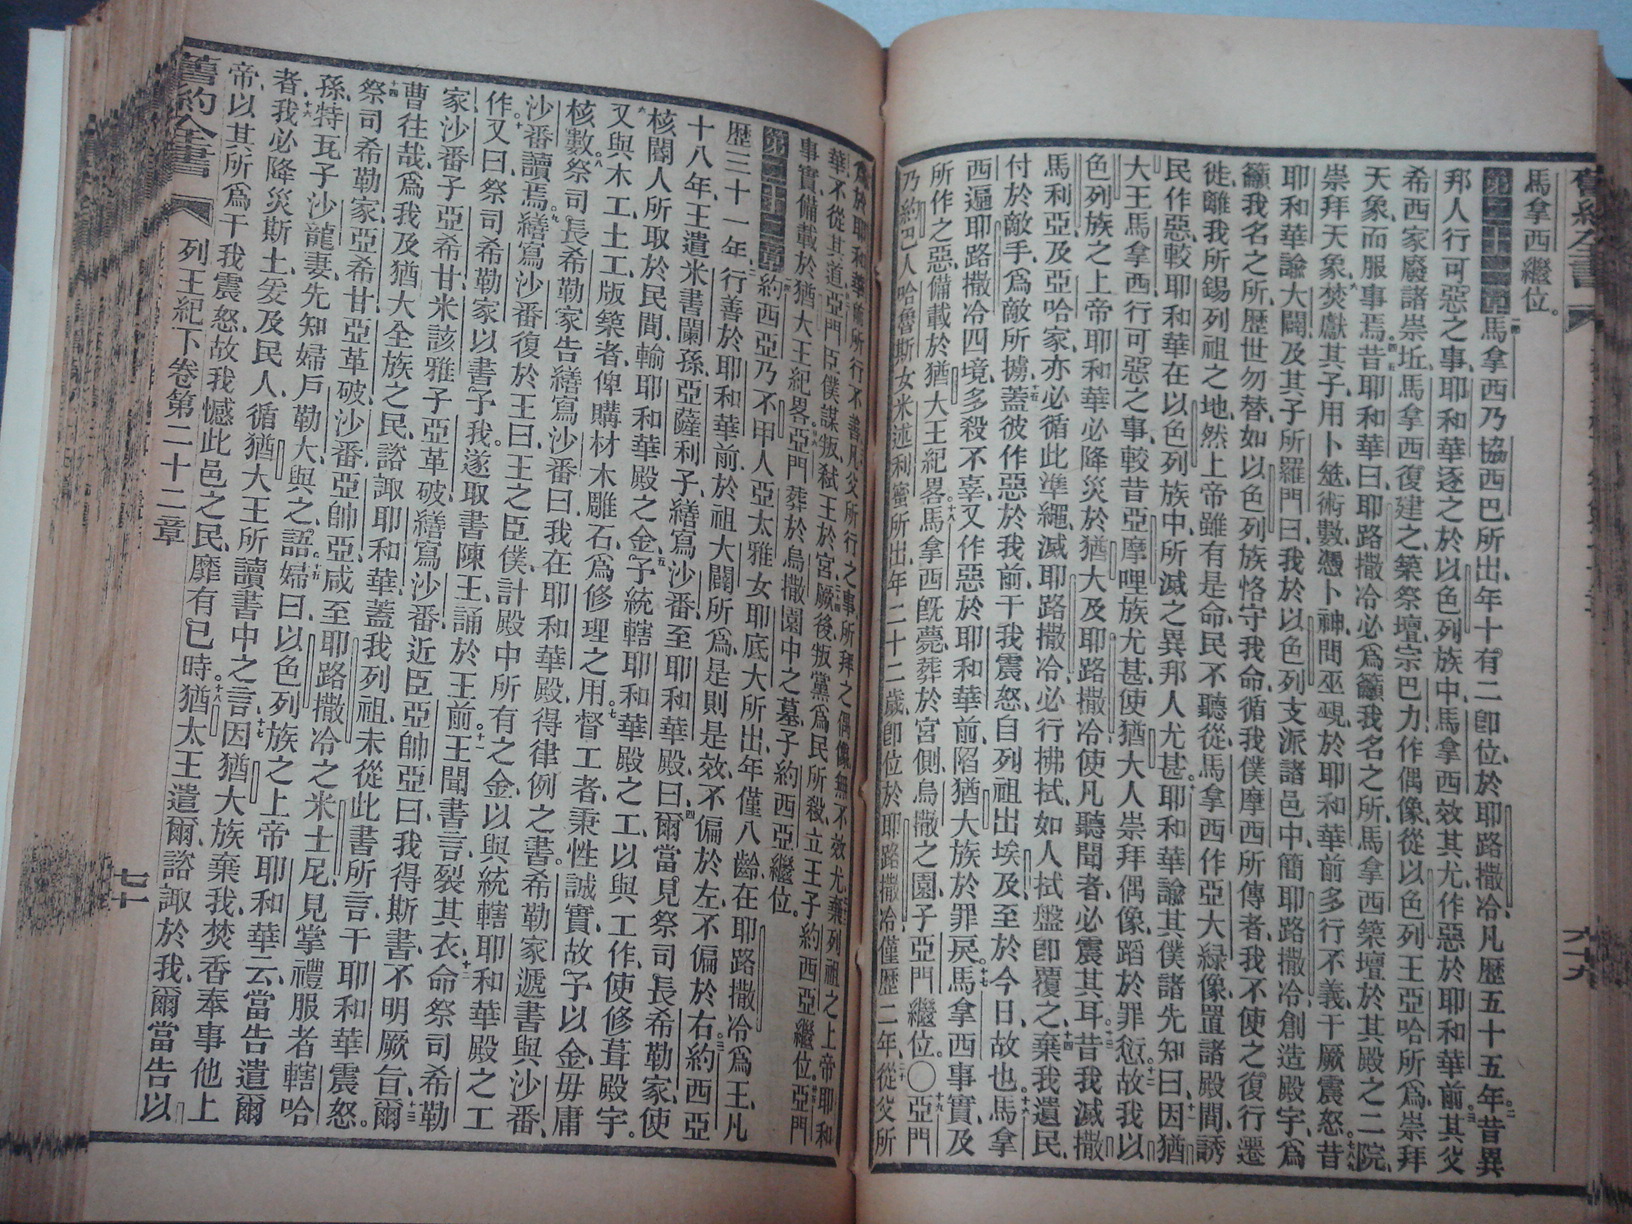 馬拿西繼位。
第二十一章馬拿西乃協西巴所出、年十有二卽位、於耶路撒冷、凡歷五十五年。昔異
邦人行可惡之事、耶和華逐之於以色列族中、馬拿西效其尤、作惡於耶和華前。其父
希西家廢諸崇坵、馬拿西復建之、築祭壇、宗巴力、作偶像、從以色列王亞哈所爲、崇拜
天象、而服事焉。昔耶和華曰、耶路撒冷必爲籲我名之所、馬拿西築壇於其殿之二院、
崇拜天象、焚獻其子、用卜筮術數、憑卜神、問巫覡、於耶和華前、多行不義、干厥震怒。昔
耶和華諭大闢、及其子所羅門曰、我於以色列支派諸邑中、簡耶路撒冷、創造殿宇、爲
籲我名之所、歷世勿替、如以色列族恪守我命、循我僕摩西所傳者、我不使之復行遷
徙、離我所錫列祖之地、然上帝雖有是命、民不聽從、馬拿西作亞大綠像、置諸殿間、誘
民作惡、較耶和華在以色列族中、所滅之異邦人尤甚。耶和華諭其僕諸先知曰、因猶
大王馬拿西行可惡之事、較昔亞摩哩族尤甚、使猶大人崇拜偶像、蹈於罪愆、故我以
色列族之上帝耶和華、必降災於猶大及耶路撒冷、使凡聽聞者、必震其耳。昔我滅撒
馬利亞、及亞哈家、亦必循此準繩、滅耶路撒冷、必行拂拭、如人拭盤、卽覆之、棄我遺民、
付於敵手、爲敵所擄、蓋彼作惡於我前、干我震怒、自列祖出埃及、至於今日、故也。馬拿
西遍耶路撒冷四境、多殺不辜、又作惡於耶和華前、陷猶大族於罪戾。馬拿西事實、及
所作之惡、備載於猶大王紀畧。馬拿西旣薨、葬於宮側、烏撒之園、子亞門繼位。〇亞門
乃約巴人哈魯斯女米述利蜜所出、年二十二歲卽位、於耶路撒冷、僅歷二年、從父所
爲、於耶和華前、所行不善、凡父所行之事、所拜之偶像、無不效尤、棄列祖之上帝耶和
華、不從其道、亞門臣僕謀叛、弒王於宮、厥後叛黨爲民所殺、立王子約西亞繼位。亞門
事實、備載於猶大王紀畧、亞門葬於烏撒園中之墓、子約西亞繼位。
第二十二章約西亞乃不甲人亞太雅女耶底大所出、年僅八齡、在耶路撒冷爲王、凡
歷三十一年、行善於耶和華前、於祖大闢所爲、是則是效、不偏於左、不偏於右。約西亞
十八年、王遣米書蘭孫、亞薩利子、繕寫沙番、至耶和華殿、曰、爾當見祭司長希勒家、使
核閽人所取於民間、輸耶和華殿之金、予統轄耶和華殿之工、以與工作、使修葺殿宇。
又與木工、土工、版築者、俾購材木雕石、爲修理之用。督工者秉性誠實、故予以金、毋庸
核數。祭司長希勒家告繕寫沙番曰、我在耶和華殿、得律例之書。希勒家遞書與沙番、
沙番讀焉。繕寫沙番復於王曰、王之臣僕、計殿中所有之金、以與統轄耶和華殿之工
作。又曰、祭司希勒家以書予我。遂取書陳王、誦於王前。王聞書言、裂其衣、命祭司希勒
家、沙番子亞希甘、米該雅子亞革破、繕寫沙番、近臣亞帥亞曰、我得斯書、不明厥旨、爾
曹往哉、爲我及猶大全族之民、諮諏耶和華、蓋我列祖未從此書所言、干耶和華震怒。
祭司希勒家、亞希甘、亞革破、沙番、亞帥亞、咸至耶路撒冷之米士尼、見掌禮服者、轄哈
孫、特瓦子、沙龍妻、先知婦戶勒大、與之語。婦曰、以色列族之上帝耶和華云、當告遣爾
者、我必降災斯土、爰及民人、循猶大王所讀書中之言、因猶大族棄我、焚香奉事他上
帝、以其所爲干我震怒、故我憾此邑之民、靡有已時。猶大王遣爾諮諏於我、爾當告以
舊約全書 列王紀下卷第二十二章 七十
舊約全書 六十九